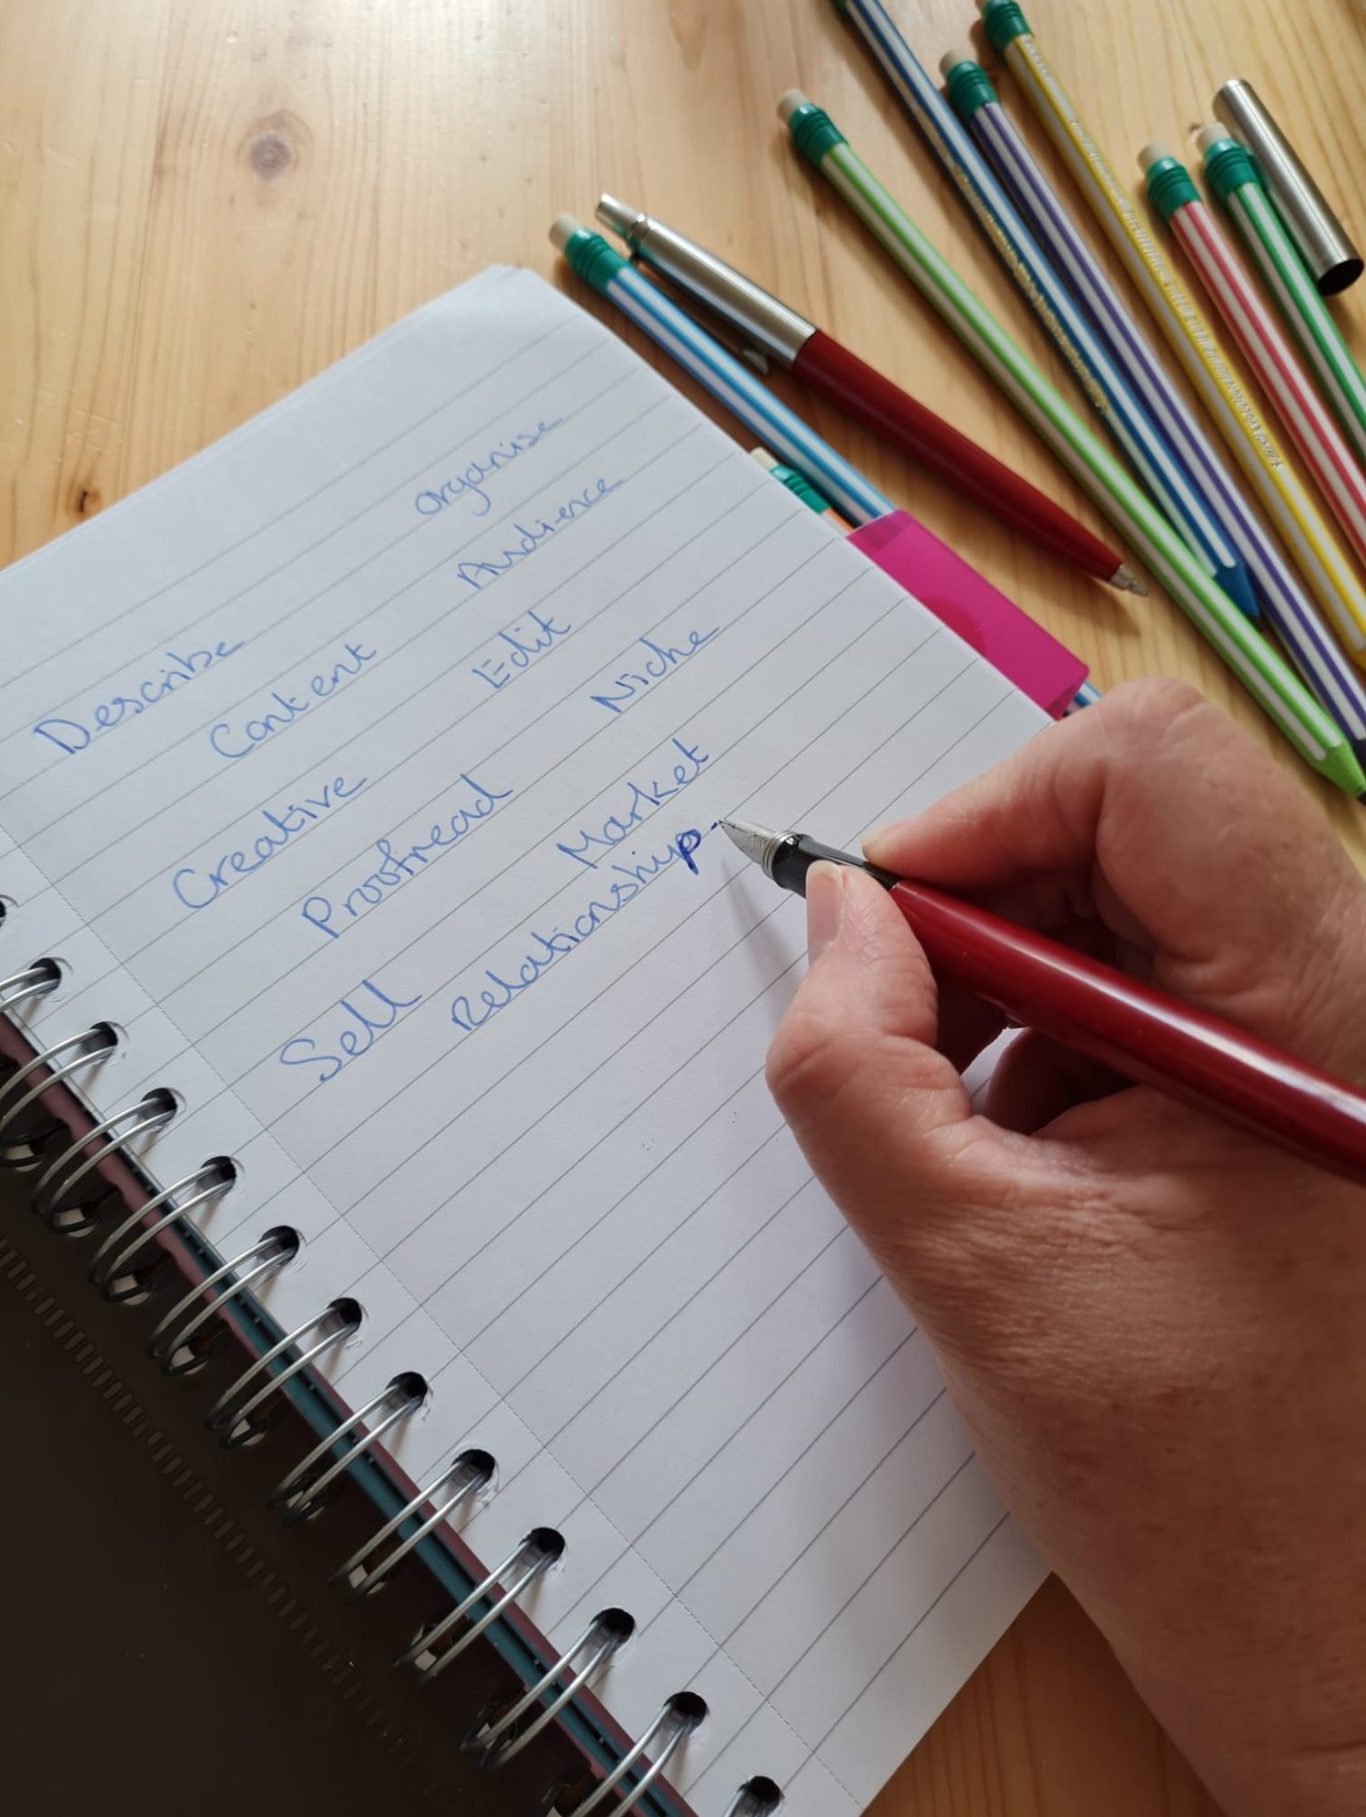 Organise
Describe
Audience
Content
Edit
Creative
Niche
Proofread
Market
Sell
Relationship